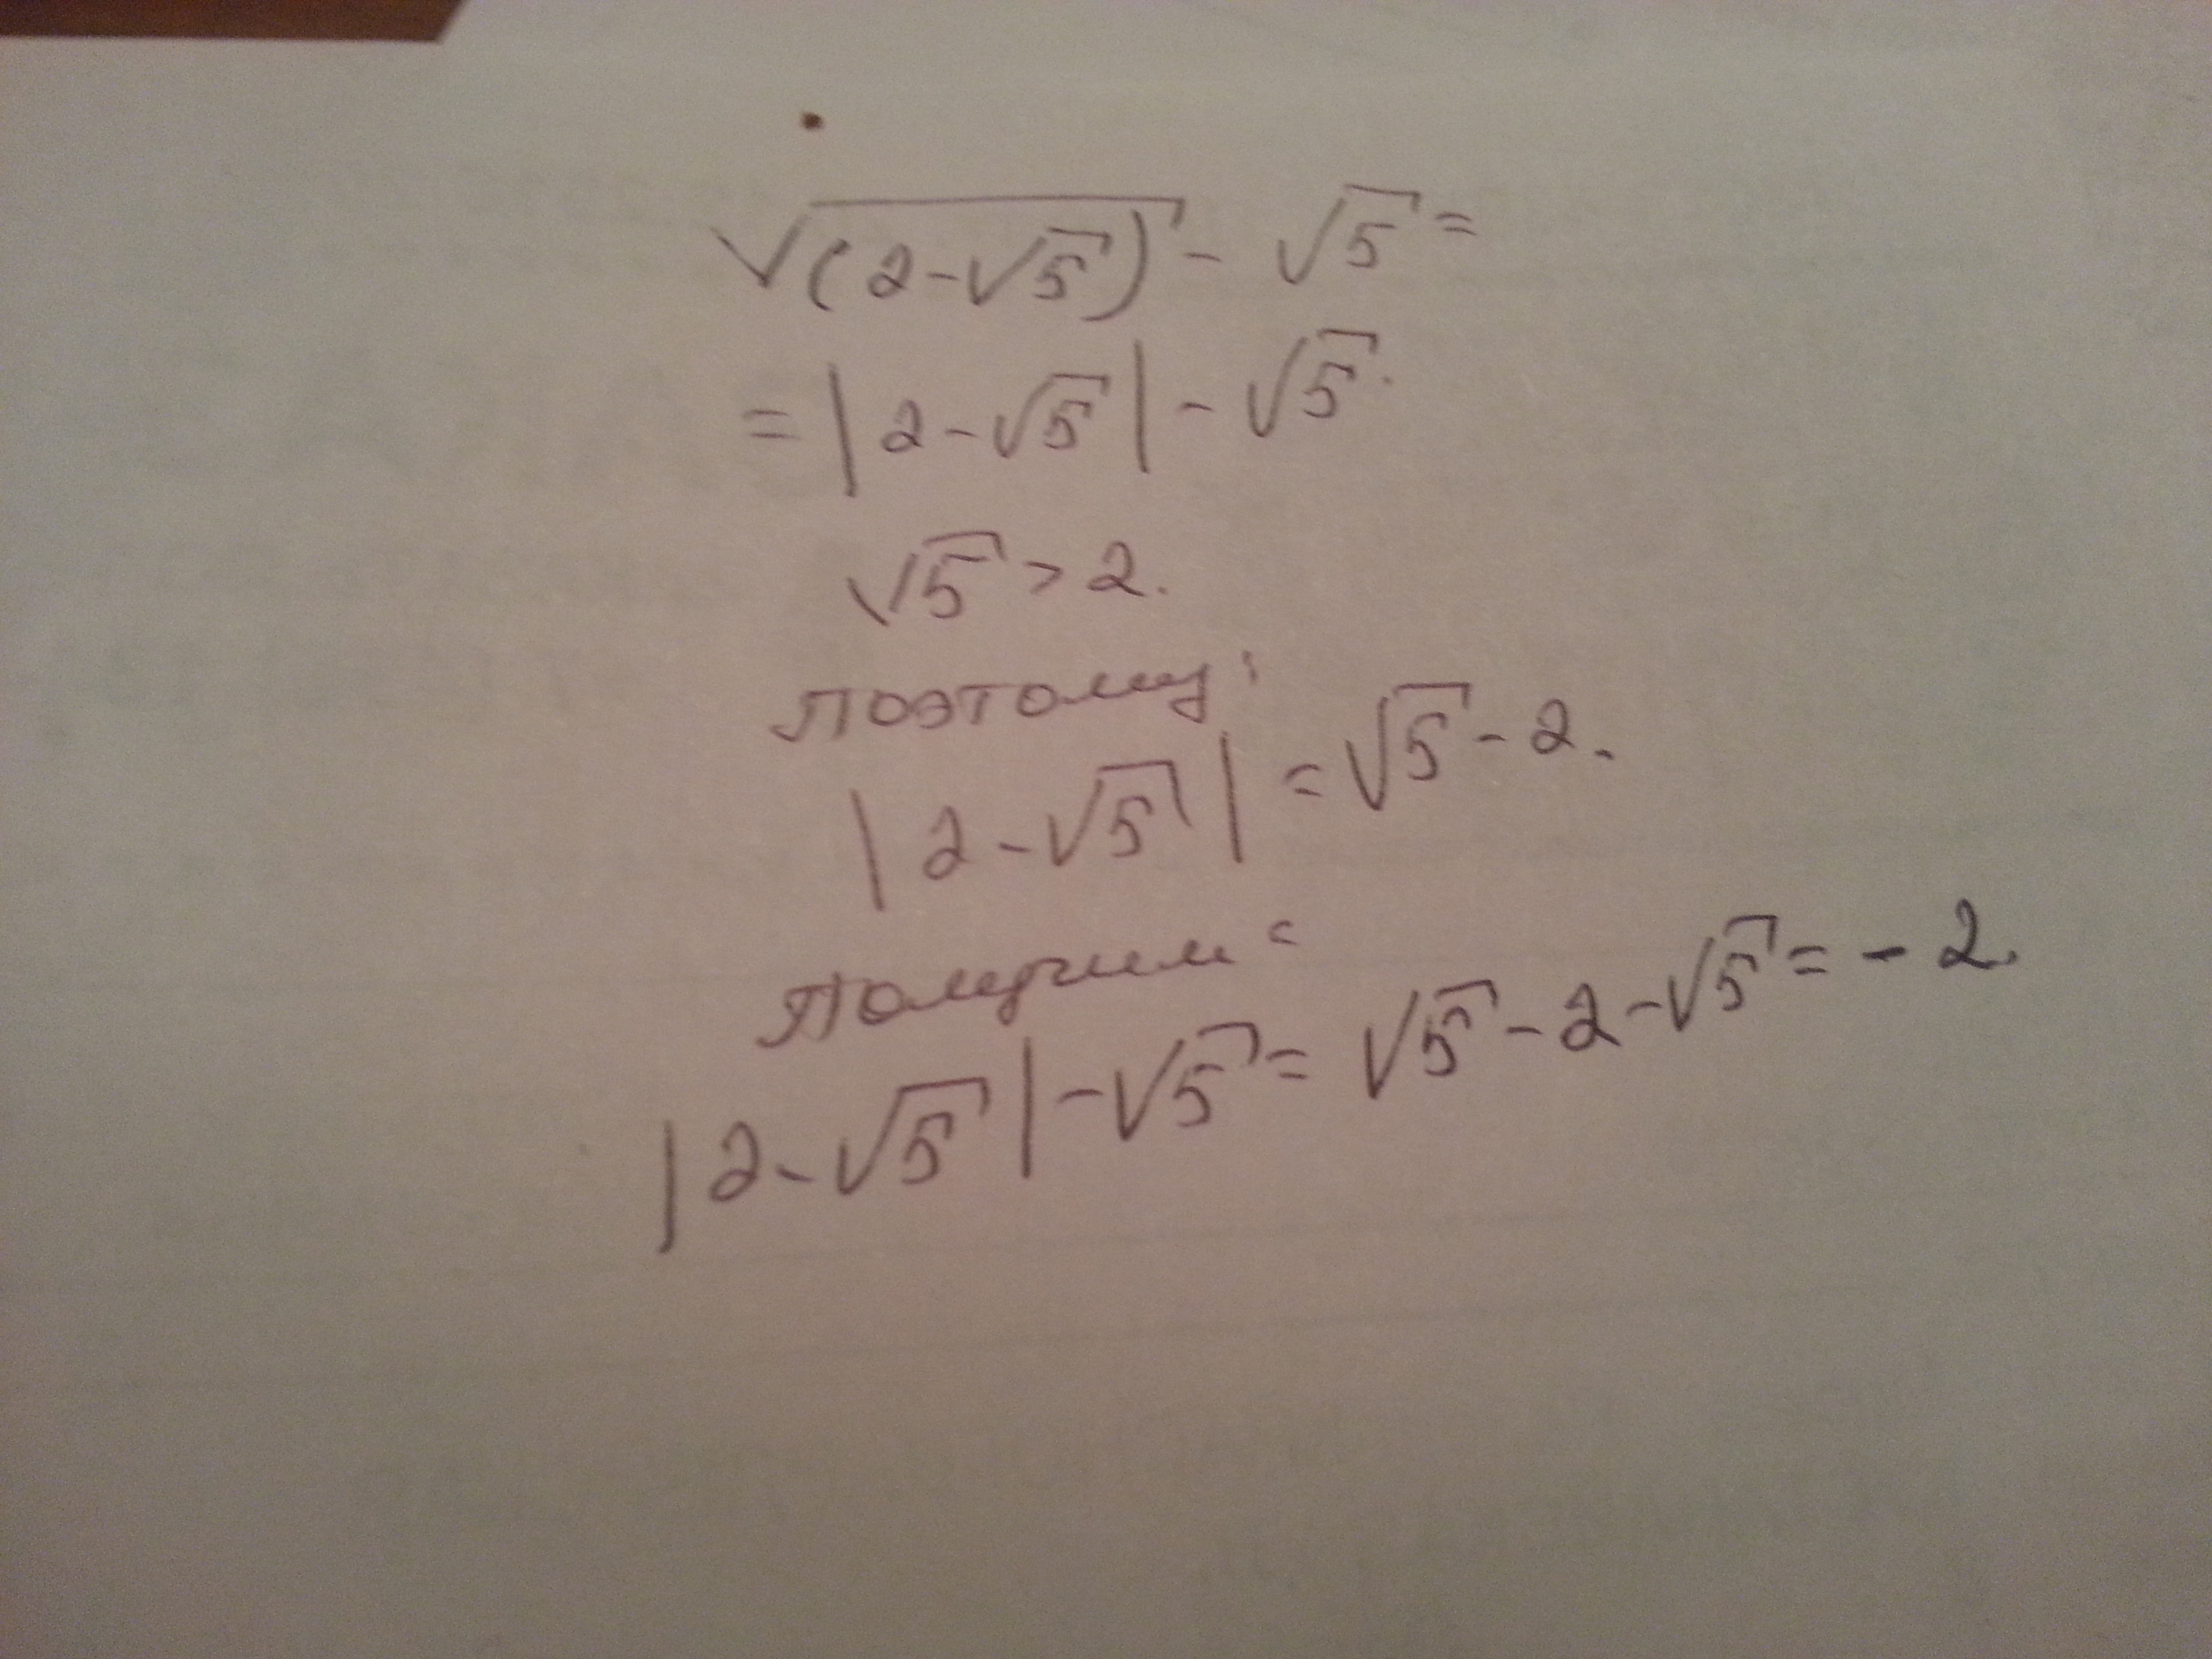 √(2-√5) - √5 =
= |2-√5| - √5.
√5 > 2.
Поэтому:
|2-√5| = √5 - 2.
Получим:
|2-√5| - √5 = √5 - 2 - √5 = - 2.